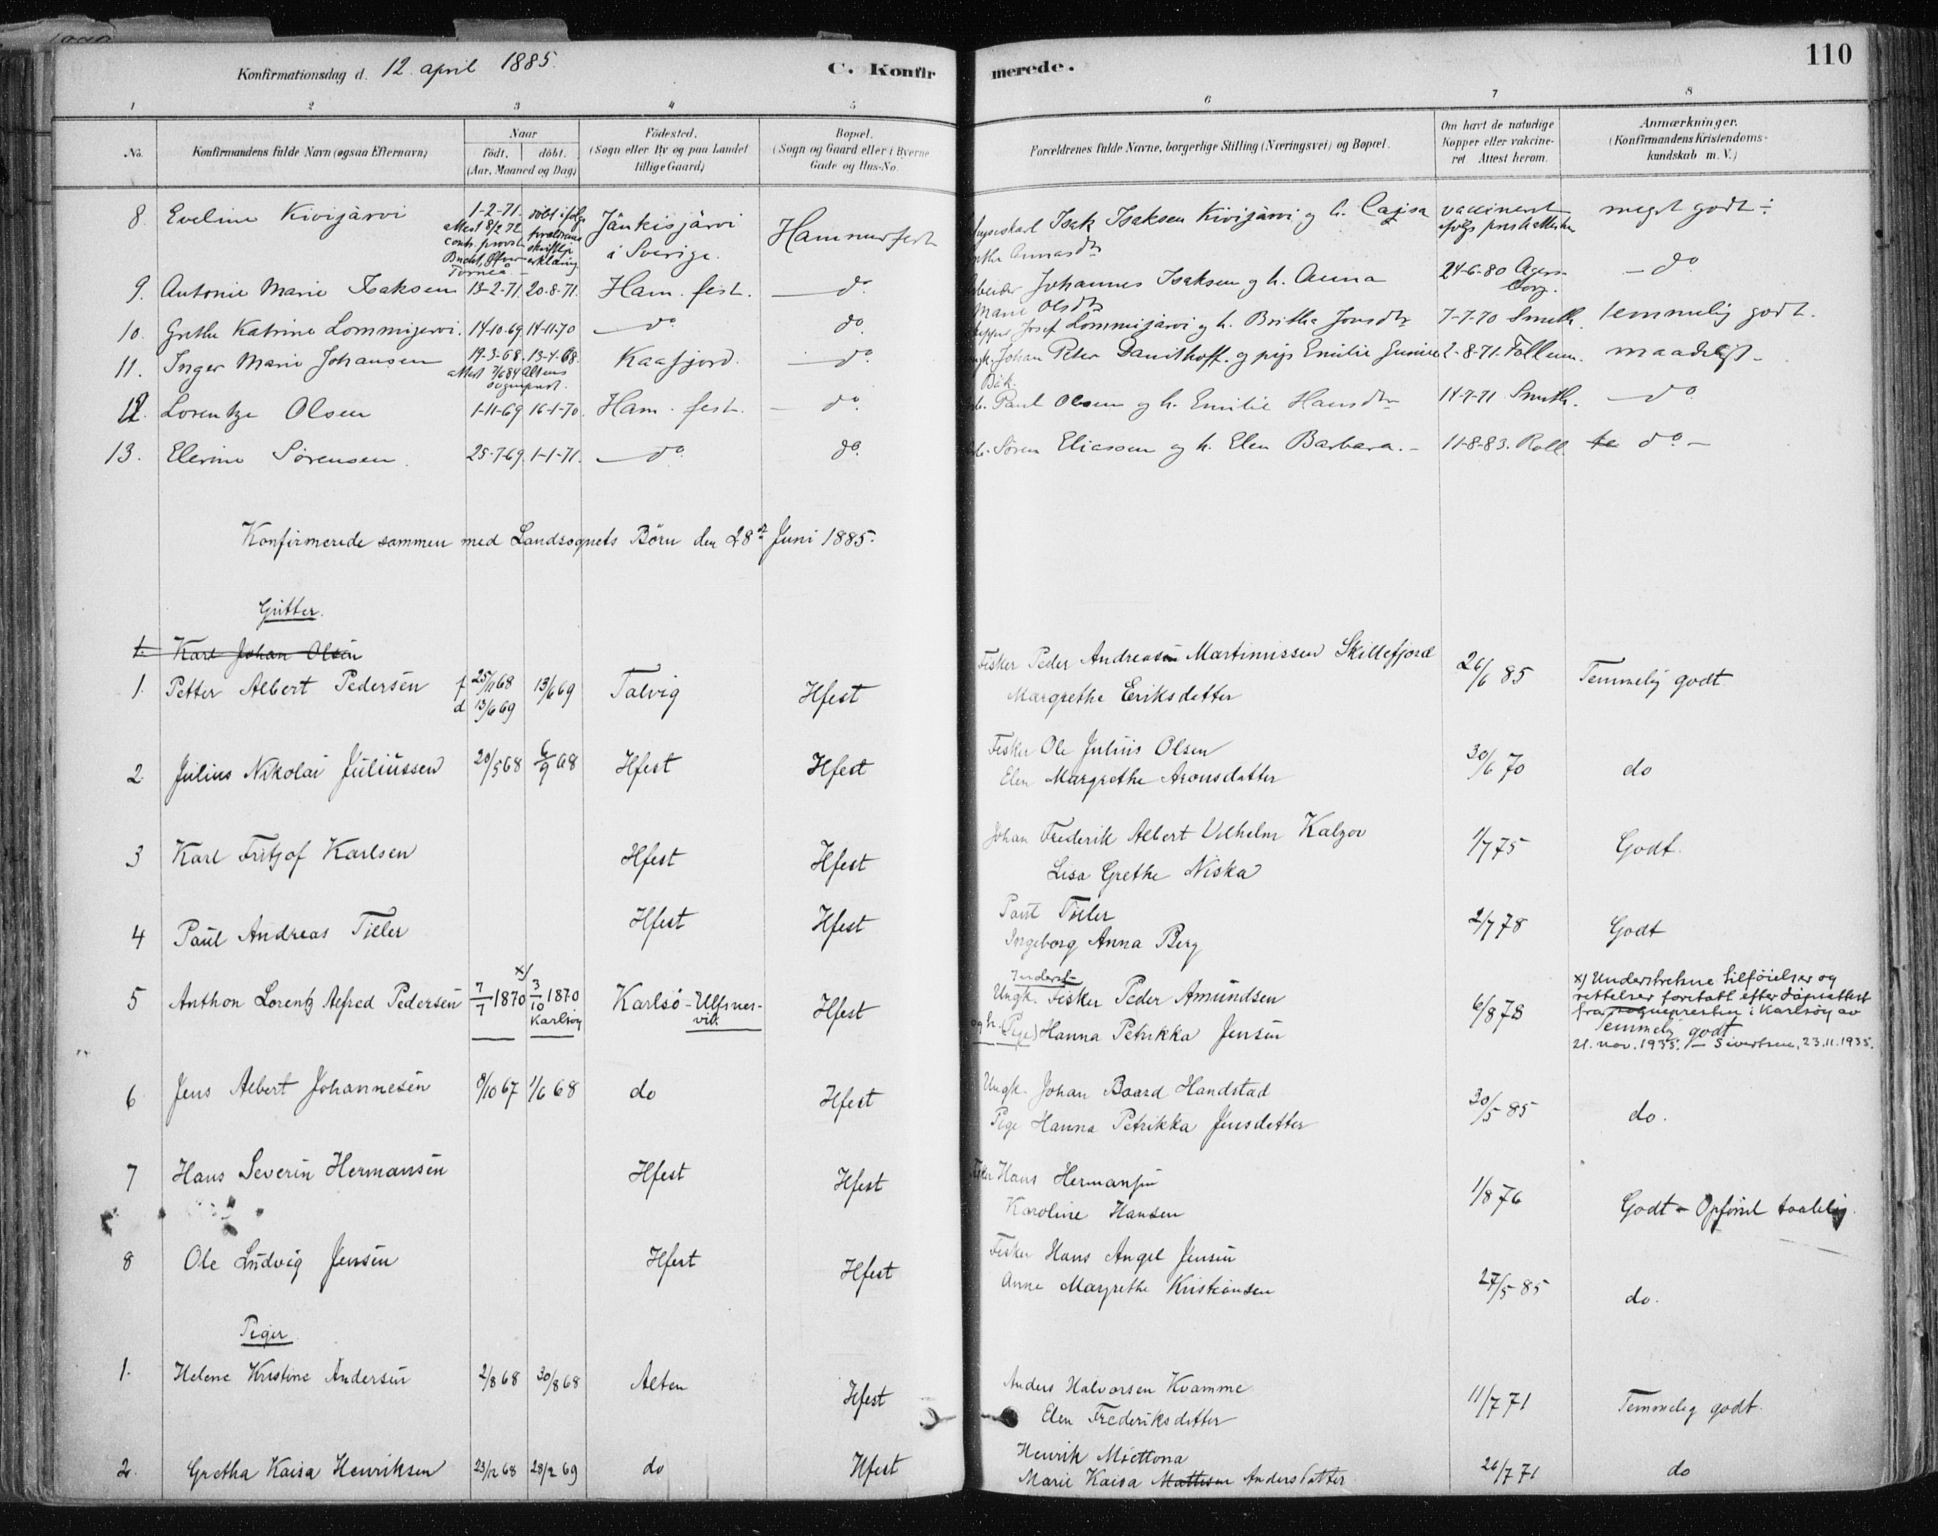 Konfirmationsdag d. 12. april 1885. C. Konfirmerede. 110
1 2 3 4 5 6 7 8
No. Konfirmandens fulde Navn (ogsaa Efternavn) Naar født. døbt. (Aar, Maaned og Dag) Fødested. (Sogn eller By og paa Landet tillige Gaard) Bopæl. (Sogn og Gaard eller i Byerne Gade og Hus-No. Forældrenes fulde Navne, borgerlige Stilling (Næringsvei) og Bopæl. Om havt de naturlige Kopper eller vakcineret. Attest herom. Anmærkninger. (Konfirmandens Kristendomskundskab m. V.)
8. Eveline Kivijärvi 1-2-71. attest 8/2 72 døbt ifølge forældrenes skriftlige erklæring Jänkisjärvi i Sverige. Hammerfest Isak Isaksen Kivijärvi og h. Cajsa Grethe Annasdr vaccineret ifølge præsteattest meget godt ÷
9. Antonie Marie Isaksen 13-2-71. 20-8-71. Ham.fest. — do Arbeider Johannes Isaksen og h. Anna Marie Olsdr 24-6-80 — do
10. Grethe Katrine Lommijervi. 14-10-69 14-11-70 — do do. Josef Lommijärvi og h. Britha Jonsdr 7-7-70 Smith. temmelig godt.
11. Inger Marie Johansen 19-3-68. 13-4-68. attest 7/6 84 Altens sognepræst. Kaafjord. — do. Johan Peter Davidhoff. og pige Emilie Bæk. 2-8-71. Follum. maadeligt –
12. Lorentze Olsen 1-11-69 16-1-70. Ham.fest. — do. Arb. Paul Olsen og h. Emilie Hansdr 14-7-71 Smith. — do
13. Elerine Sørensen. 25-7-69. 1-1-71. — do. do. Arb. Søren Eliassen og h. Elen Barbara. – 11-8-83. Roll do –
Konfirmerede sammen med Landsognets Børn den 28de Juni 1885.
Gutter.
1. Karl Johan Olsen
1. Petter Albert Pedersen f 25/11 68 d 13/6 69 13/6 69 Talvig Hfest Fisker Peder Andreas Martinussen Skillefjord Margrethe Eriksdatter 26/6 85 Temmelig godt
2 Julius Nikolai Juliussen 20/5 68 6/9 68 Hfest Hfest Fisker Ole Julius Olsen Elen Margrethe Aronsdatter 30/6 70 do
3 Karl Fritjof Karlsen Hfest Hfest Johan Frederik Albert Vilhelm Kalzov Lisa Grethe Niska 1/7 75 Godt.
4 Paul Andreas Tiller Hfest Hfest Paul Tiller Ingeborg Anna Berg 2/7 78 Godt
5 Anthon Lorentz Alfred Pedersen 7/7 1870 x) 3/10 1870 Karlsøy Karlsø - Ulfsnesvik. Hfest Inderst- Ungk. Fisker Peder Amundsen og h. (Pige) Hanna Petrikka Jensen 6/8 78 x) Understrekne tilføielser og rettelser foretatt efter dåpsattest fra sognepresten i Karlsøy av 21. nov. 1935. Sivertsen, 23.11.1935. Temmelig godt
6 Jens Albert Johannesen 8/10 67 1/6 68 do Hfest Ungk. Johan Baard Handstad Pige Hanna Petrikka Jensdatter 30/5 85 do.
7 Hans Severin Hermansen Hfest Hfest Fisker Hans Hermansen Karoline Hansen 1/8 76 Godt – Opførsel taalelig.
8 Ole Ludvig Jensen Hfest Hfest Fisker Hans Angel Jensen Anne Margrethe Kristiansen 27/5 85 do.
Piger
1. Helene Kristine Andersen 2/8 68 30/8 68 Alten Hfest Anders Halvorsen Kvamme Elen Frederiksdatter 11/7 71 Temmelig godt.
2. Gretha Kaisa Henriksen 23/12 68 28/2 69 do Hfest Henrik Miettona Marie Kaisa Mattisen Andersdatter. 26/7 71 do